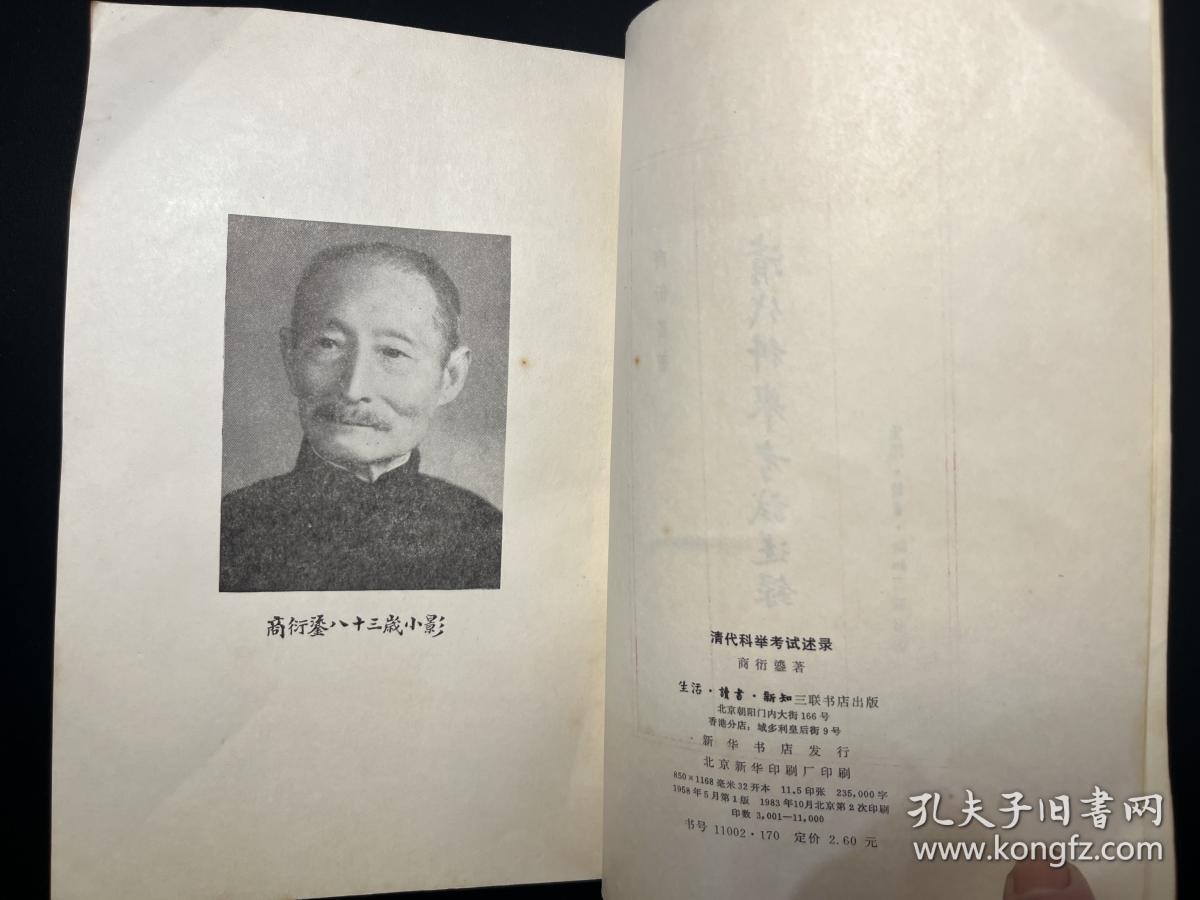 商衍鎏八十三歲小影
清代科举考试述录
商衍鎏著
生活·讀書·新知三联书店出版
北京朝阳门内大街166号
香港分店：域多利皇后街9号
新华书店发行
北京新华印刷厂印刷
850×1168毫米32开本 11.5印张 235,000字
1958年5月第1版 1983年10月北京第2次印刷
印数 3,001—11,000
书号 11002·170 定价 2.60 元
孔夫子旧书网
www.kongfz.com